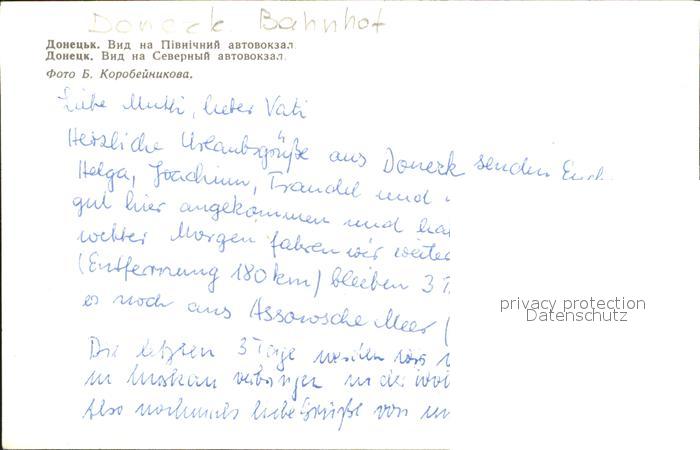 Doneck Bahnhof
Донецьк. Вид на Північний автовокзал.
Донецк. Вид на Северный автовокзал.
Фото Б. Коробейникова.
Liebe Mutti, lieber Vati
Herzliche Urlaubsgrüße aus Doneck senden Euch
Helga, Joachim, Traudel und
gut hier angekommen und ha
Morgen fahren wir weiter
(Entfernung 180 km) bleiben 3 T
es noch ans Assowsche Meer (
privacy protection
Datenschutz
Die letzten 3 Tage werden wir
in Moskau verbringen
Also nochmals liebe Grüße von un